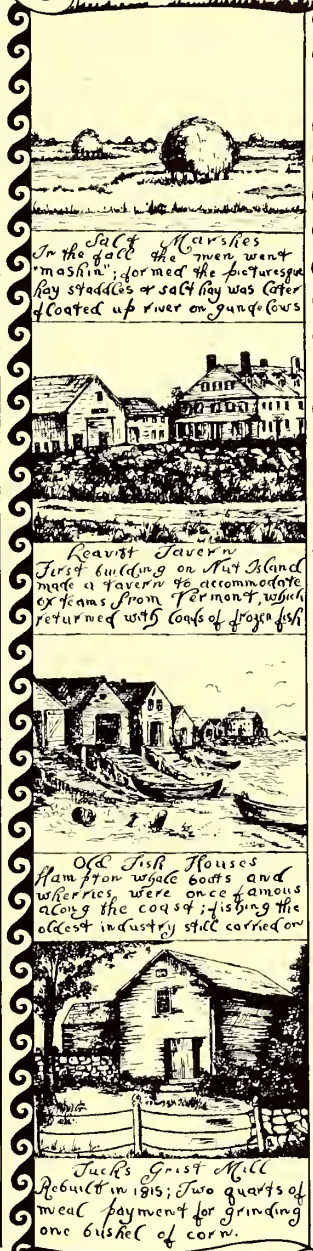 Salt Marshes
In the fall the men went
"mashin"; formed the picturesque
hay staddles or salt hay was later
floated up river on gundelows
Leavitt Tavern
First building on Nut Island
made a tavern to accommodate
ox teams from Vermont, which
returned with loads of frozen fish
Old Fish Houses
Hampton whale boats and
wherries were once famous
along the coast; fishing the
oldest industry still carried on
Tuck's Grist Mill
Rebuilt in 1815; Two quarts of
meal payment for grinding
one bushel of corn.